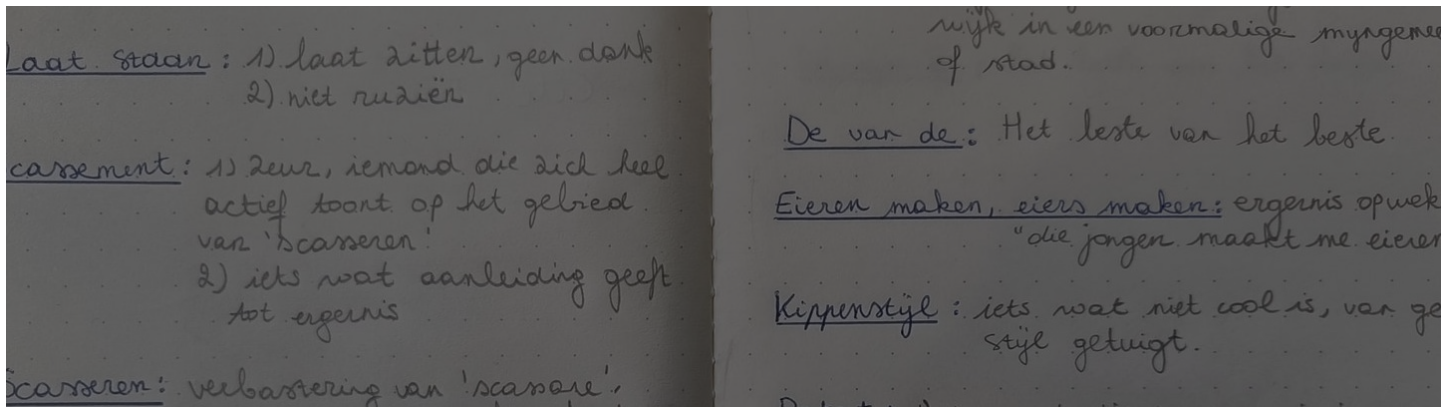 Laat staan: 1) laat zitten, geen dank
2) niet ruziën
cassement: 1) zeur, iemand die zich heel
actief toont op het gebied
van 'scasseren'
2) iets wat aanleiding geeft
tot ergernis
Scasseren: verbastering van 'scassare',
wijk in een voormalige myngemee
of stad.
De van de: Het beste van het beste
Eieren maken, eiers maken: ergernis opwek
"die jongen maakt me eieren
Kippenstijl: iets wat niet cool is, van ge
stijl getuigt.